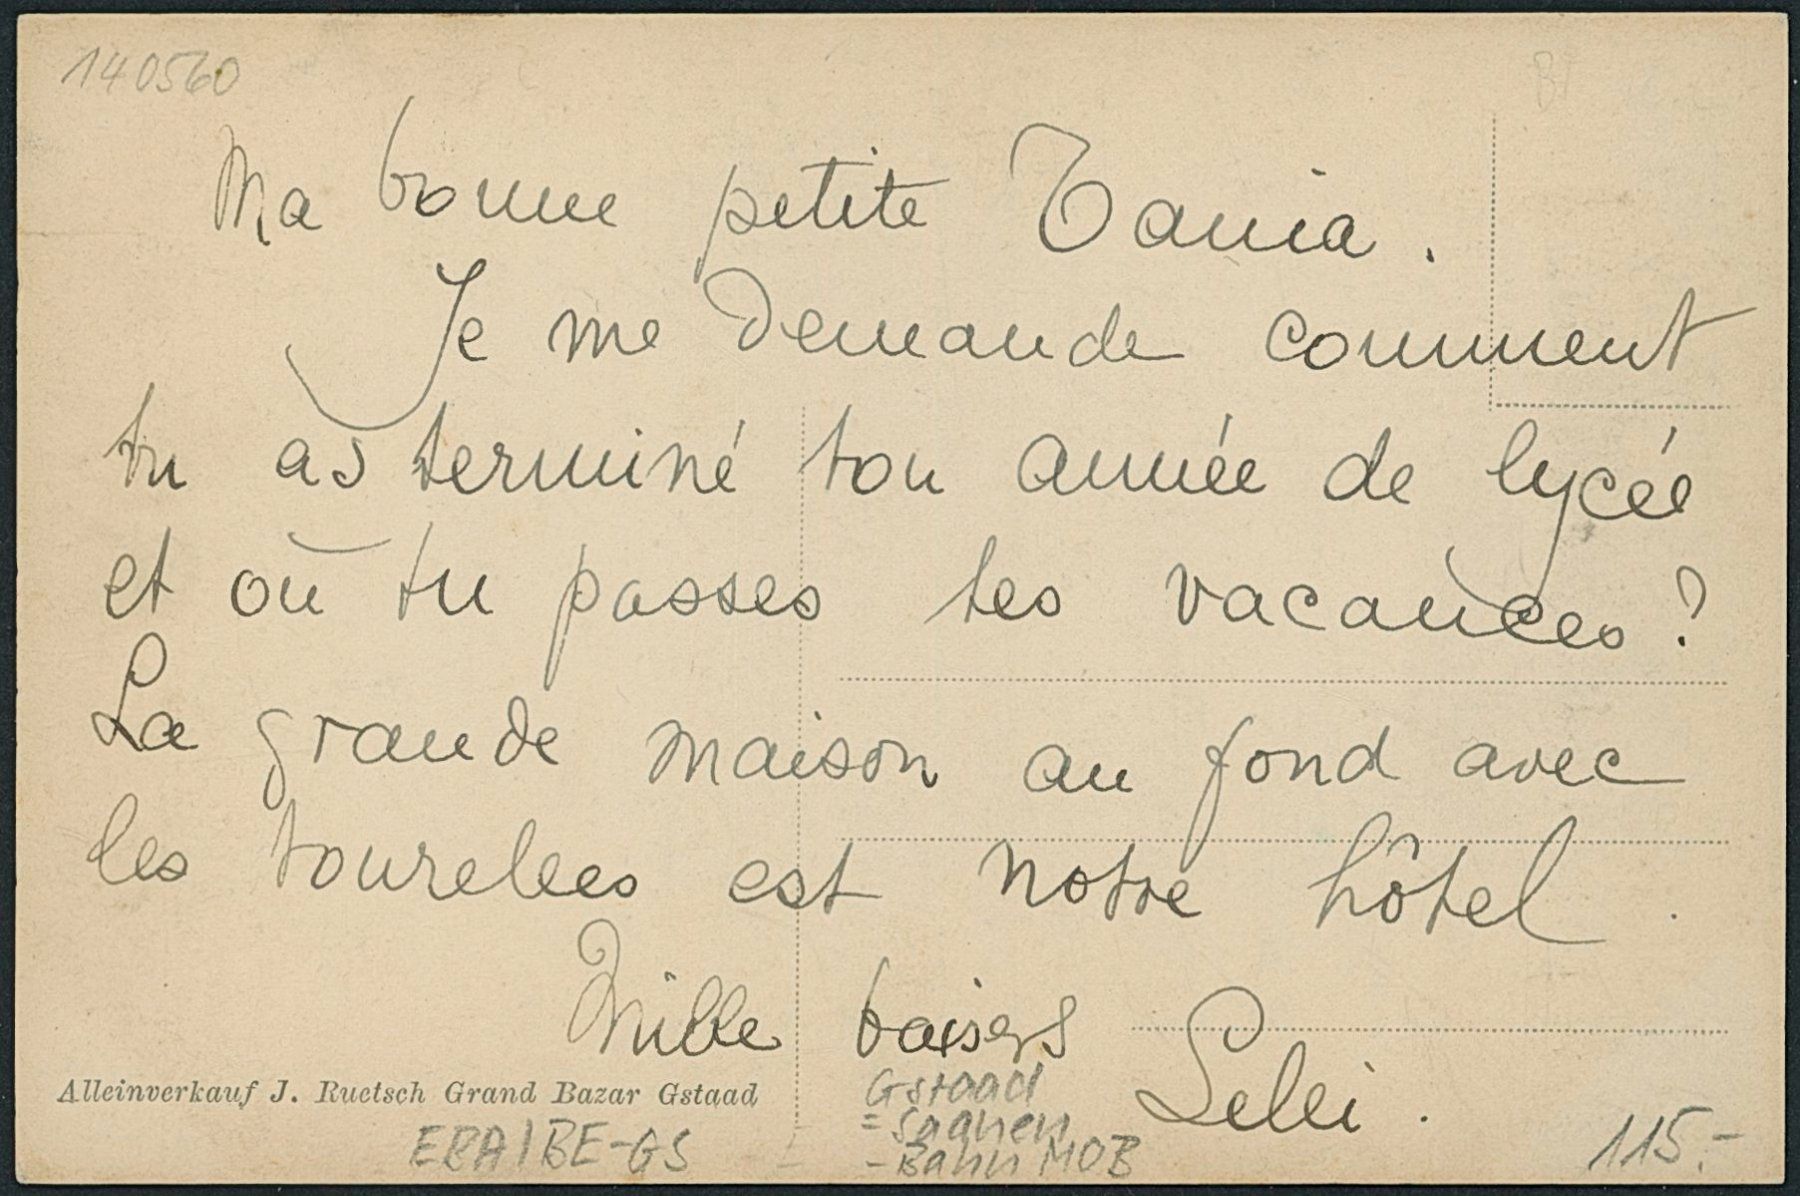 140560
Ma bonne petite Tania.
Je me demande comment
tu as terminé ton année de lycée
et où tu passes tes vacances?
La grande maison au fond avec
les tourelles est notre hôtel.
Mille baisers
Lelei.
Alleinverkauf J. Ruetsch Grand Bazar Gstaad
Gstaad
= Saanen
- Bahn MOB
115.-